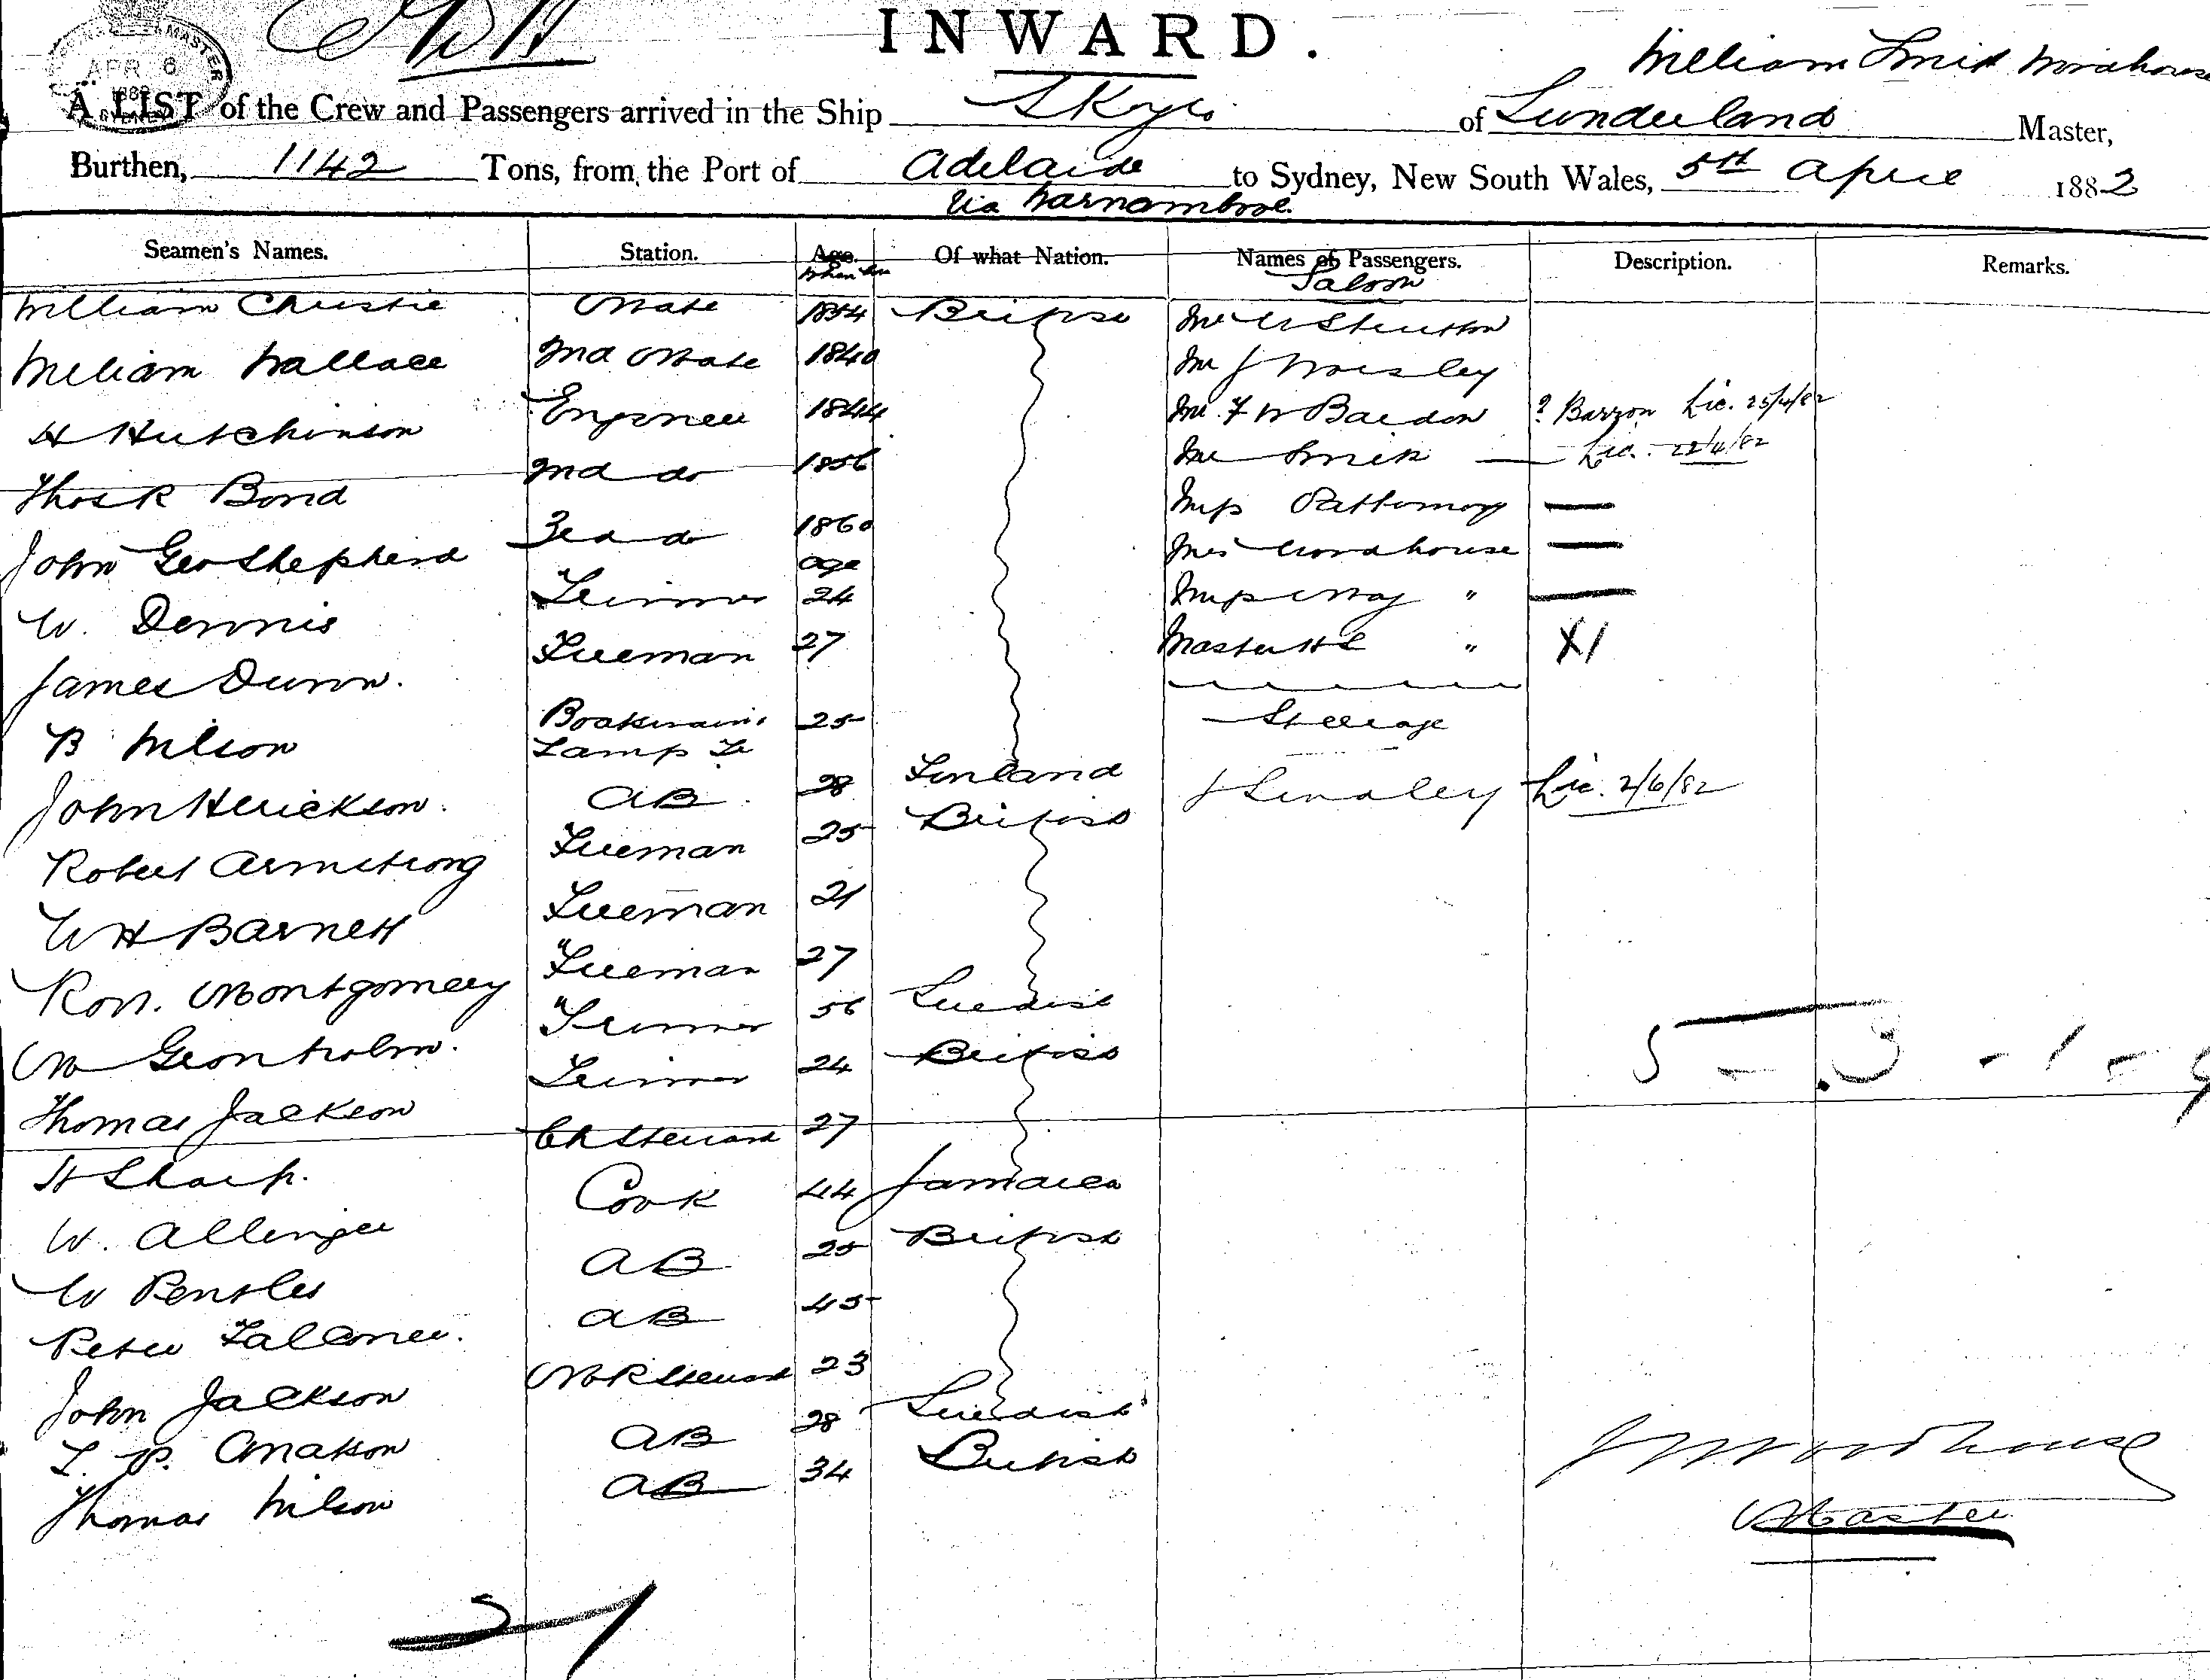 INWARD.
William Smith Woodhouse
APR 6
1882
SYDNEY
A LIST of the Crew and Passengers arrived in the Ship Skyro of Sunderland Master,
Burthen, 1142 Tons, from the Port of Adelaide to Sydney, New South Wales, 5th April 1882
Via Warnambool.
Seamen's Names. Station. Age. Of what Nation. Names of Passengers. Description. Remarks.
When born Saloon
William Christie Mate 1854 British Mr W Stenson
William Wallace 2nd Mate 1840 Mr J Worsley
H Hutchinson Engineer 1844 Mr F W Bardon ? Barron Lic. 25/4/82
Thos R Bond 2nd do 1856 Mr Smith Lic. 22/4/82
John Geo Shepherd 3rd do 1860 Miss
W. Dennis Trimmer age 24 Mrs Woodhouse
James Dunn. Fireman 27 Miss May "
B Wilson Boatswain & Lamp Tr 25 Master H E " X1
Steerage
John Herickson. AB 28 Finland J Lindley Lic. 2/6/82
Robert Armstrong Fireman 25 British
W H Barnett Fireman 21
Robt. Montgomery Fireman 27
M Gronholm. Trimmer 56 Swedish
Thomas Jackson Trimmer 24 British
5 - 3 - 1 - 9
H Sharp. Ch Steward 27
W. Allinger Cook 44 Jamaica
W Pensles AB 25 British
Peter Falconer. AB 45
John Jackson MR Steward 23
L. P. Matson AB 28 Swedish
Thomas Wilson AB 34 British
J W Woodhouse
Master